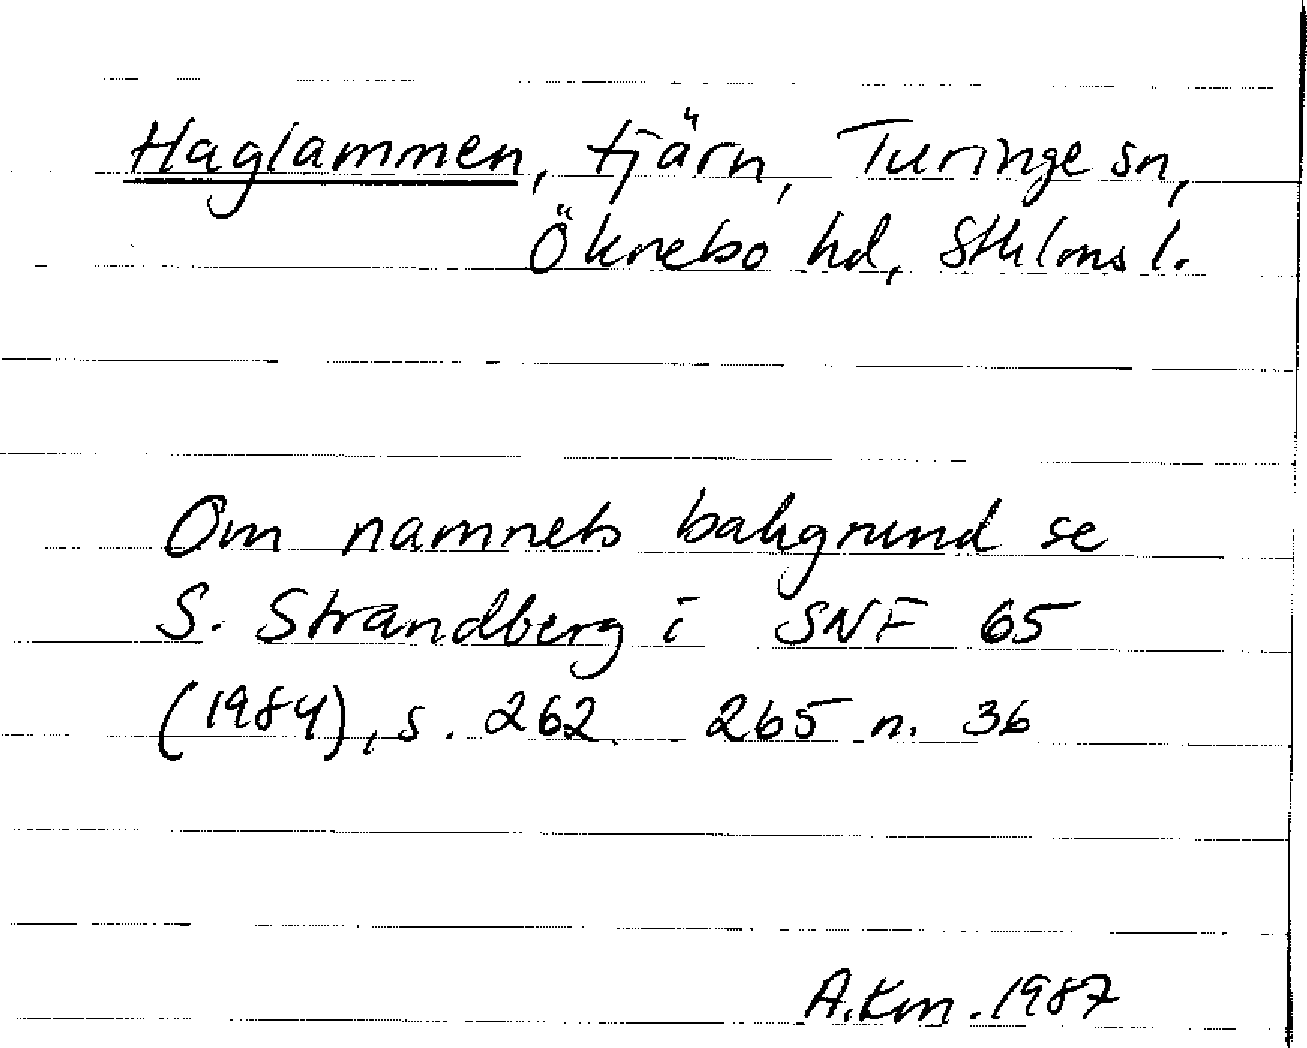 Haglammen, tjärn, Turinge sn,
Öknebo hd, Sthlms l.
Om namnets bakgrund se
S. Strandberg i SNF 65
(1984), s. 262. 265 n. 36
A.Km. 1987